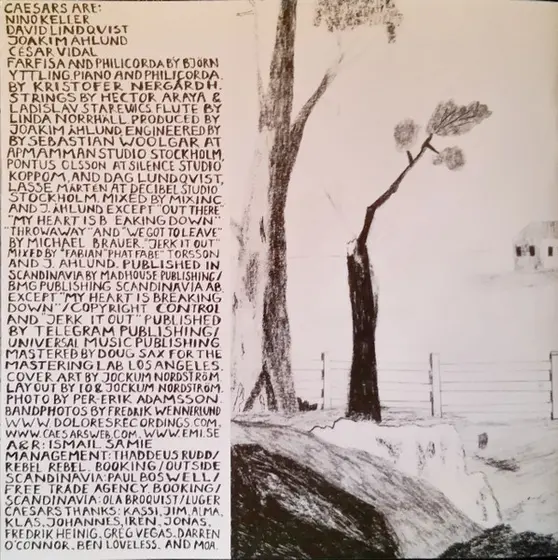 CAESARS ARE:
NINO KELLER
DAVID LINDQVIST
JOAKIM ÅHLUND
CÉSAR VIDAL
FARFISA AND PHILICORDA BY BJÖRN
YTTLING, PIANO AND PHILICORDA.
BY KRISTOFER NERGÅRDH.
STRINGS BY HECTOR ARAYA &
LADISLAV STAREVICS FLUTE BY
LINDA NORRHÄLL PRODUCED BY
JOAKIM ÅHLUND, ENGINEERED BY
BY SEBASTIAN WOOLGAR AT
APMAMMAN STUDIO STOCKHOLM,
PONTUS OLSSON AT SILENCE STUDIO
KOPPOM, AND DAG LUNDQVIST,
LASSE MÅRTEN AT DECIBEL STUDIO
STOCKHOLM. MIXED BY MIXINC
AND J. ÅHLUND EXCEPT "OUT THERE"
"MY HEART IS B EAKING DOWN"
"THROWAWAY" AND "WE GOT TO LEAVE"
BY MICHAEL BRAUER. "JERK IT OUT"
MIXED BY "FABIAN" PHAT FABE" TORSSON
AND J. AHLUND. PUBLISHED IN
SCANDINAVIA BY MADHOUSE PUBLISHING/
BMG PUBLISHING SCANDINAVIA AB
EXCEPT "MY HEART IS BREAKING
DOWN"/COPYRIGHT CONTROL
AND "JERK IT OUT" PUBLISHED
BY TELEGRAM PUBLISHING/
UNIVERSAL MUSIC PUBLISHING
MASTERED BY DOUG SAX FOR THE
MASTERING LAB LOS ANGELES.
COVER ART BY JOCKUM NORDSTRÖM.
LAY OUT BY IO & JOCKUM NORDSTRÖM.
PHOTO BY PER-ERIK ADAMSSON.
BANDPHOTOS BY FREDRIK WENNERLUND
WWW.DOLORESRECORDINGS.COM.
WWW.CAESARSWEB.COM. WWW.EMI.SE
A&R: ISMAIL SAMIE
MANAGEMENT: THADDEUS RUDD/
REBEL REBEL. BOOKING/OUTSIDE
SCANDINAVIA: PAUL BOSWELL/
FREE TRADE AGENCY BOOKING/
SCANDINAVIA: OLA BROQUIST/LUGER
CAESARS THANKS: KASSI, JIM, ALMA,
KLAS, JOHANNES, IREN, JONAS,
FREDRIK HEINIG, GREG VEGAS, DARREN
O'CONNOR, BEN LOVELESS, AND MOA.